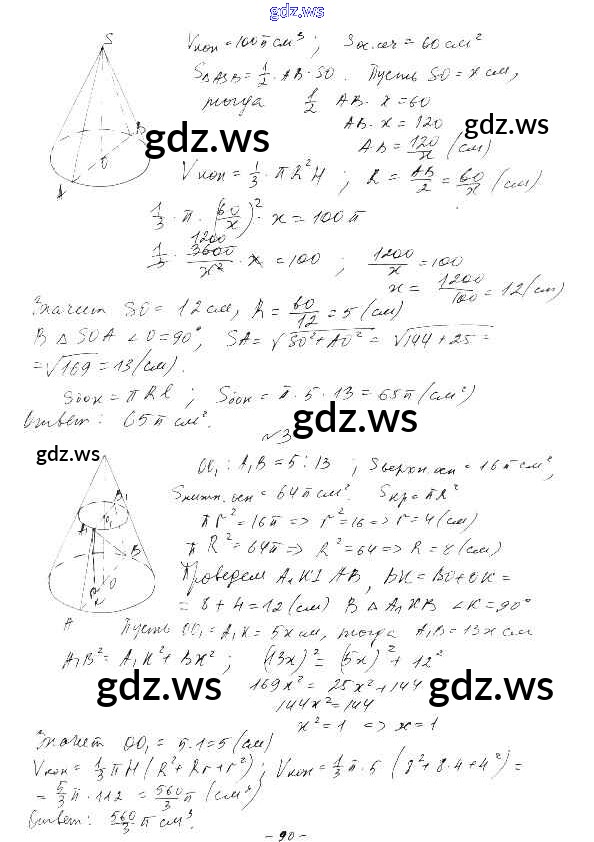 gdz.ws
S
Vкон = 100π см³ ; Sос.сеч = 60 см²
S△ASB = 1/2 · AB · SO . Пусть SO = x см,
тогда 1/2 AB · x = 60
AB · x = 120
AB = 120/x (см)
gdz.ws gdz.ws
B
O
A
Vкон = 1/3 · πR²H ; R = AB/2 = 60/x (см)
1/3 · π · (60/x)² · x = 100π
1200
1/3 · 3600/x² · x = 100 ; 1200/x = 100
x = 1200/100 = 12 (см)
Значит SO = 12 см, R = 60/12 = 5 (см)
В △ SOA ∠O = 90°, SA = √SO² + AO² = √144 + 25 =
= √169 = 13 (см).
Sбок = πRl ; Sбок = π · 5 · 13 = 65π (см²)
Ответ: 65π см².
gdz.ws
№3
gdz.ws
OO₁ : A₁B = 5 : 13 ; Sверхн.осн = 16π см²,
Sнижн.осн = 64π см². Sкр = πR²
πr² = 16π => r² = 16 => r = 4 (см)
πR² = 64π => R² = 64 => R = 8 (см)
A₁
B₁
B
O
K
A
Проведем A₁K ⊥ AB, BK = BO + OK =
= 8 + 4 = 12 (см) В △ A₁KB ∠K = 90°
Пусть OO₁ = A₁K = 5x см, тогда A₁B = 13x см
A₁B² = A₁K² + BK² ; (13x)² = (5x)² + 12²
169x² = 25x² + 144
144x² = 144
x² = 1 => x = 1
gdz.ws gdz.ws
Значит OO₁ = 5·1 = 5 (см)
Vкон = 1/3 πH (R² + Rr + r²) ; Vкон = 1/3 π · 5 (8² + 8·4 + 4²) =
= 5/3 π · 112 = 560/3 π (см³)
Ответ: 560/3 π см³.
- 90 -